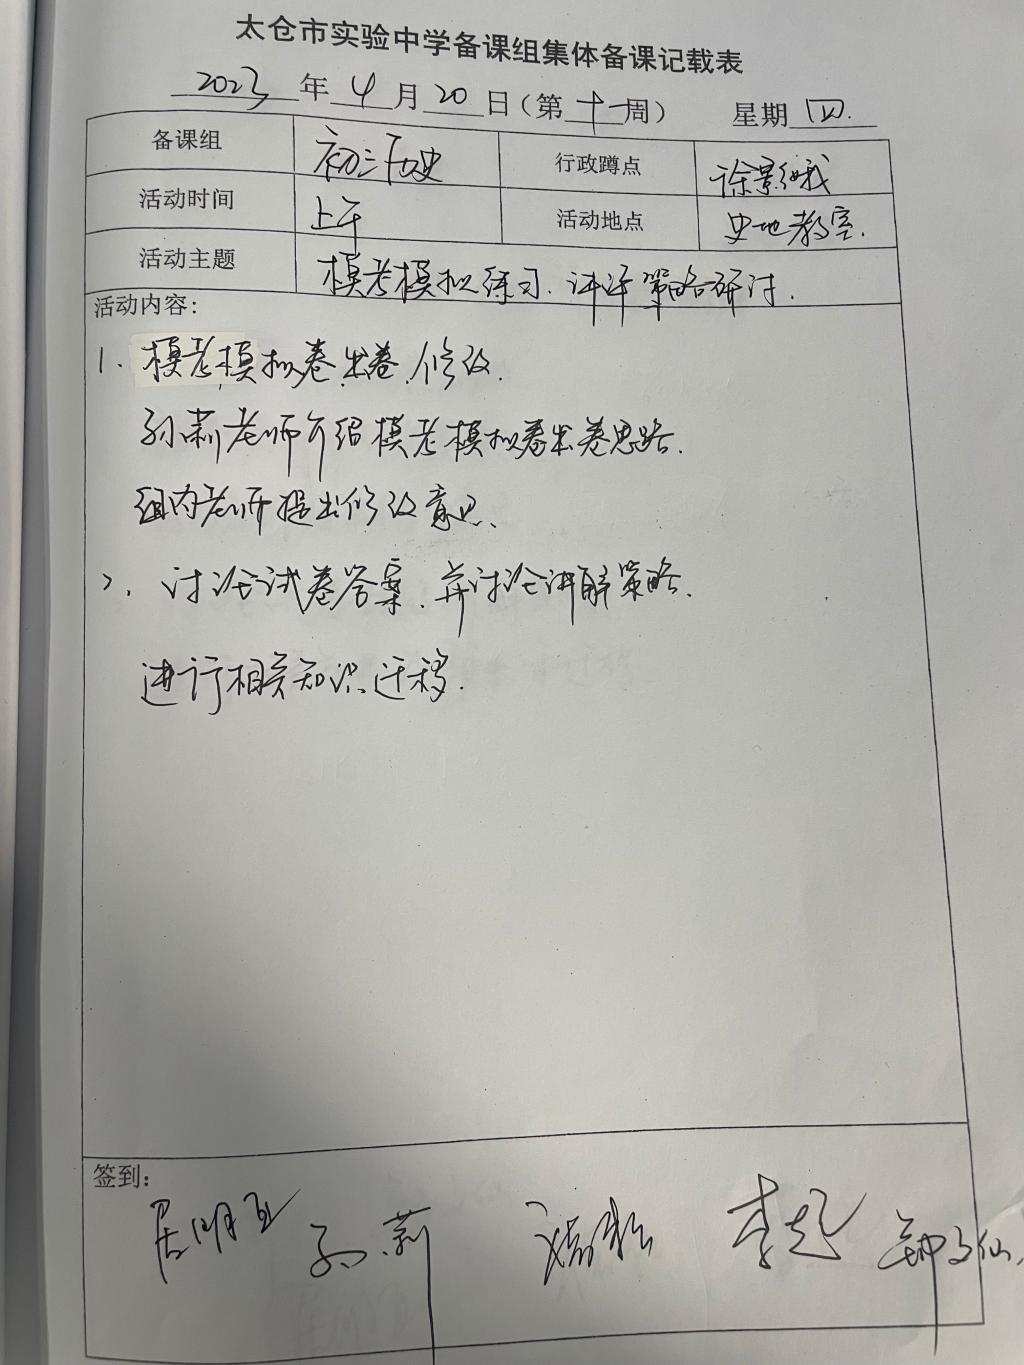 太仓市实验中学备课组集体备课记载表
2023年4月20日（第十一周） 星期四.
备课组 初三历史 行政蹲点
活动时间 上午 活动地点 史地教室.
活动主题 模考模拟练习.讲评策略研讨.
活动内容:
1. 模考模拟卷出卷.修改.
孙莉老师介绍模考模拟卷出卷思路.
组内老师提出修改意见.
2. 讨论试卷答案.并讨论讲解策略.
进行相关知识迁移.
签到:
孙莉 李起